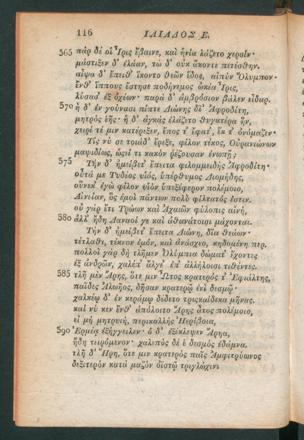 116 ΙΛΙΑΔΟΣ Ε.
565 πὰρ δέ οἱ Ἶρις ἔβαινε, καὶ ἡνία λάζετο χερσίν·
μάστιξεν δ' ἐλάαν, τὼ δ' οὐκ ἄκοντε πετέσθην.
αἶψα δ' ἔπειθ' ἵκοντο θεῶν ἕδος, αἰπὺν Ὄλυμπον·
ἔνθ' ἵππους ἔστησε ποδήνεμος ὠκέα Ἶρις,
λύσασ' ἐξ ὀχέων· παρὰ δ' ἀμβρόσιον βάλεν εἶδαρ.
570 ἡ δ' ἐν γούνασι πίπτε Διώνης δῖ' Ἀφροδίτη,
μητρὸς ἑῆς· ἡ δ' ἀγκὰς ἐλάζετο θυγατέρα ἥν,
χειρί τέ μιν κατέρεξεν, ἔπος τ' ἔφατ', ἔκ τ' ὀνόμαζεν·
Τίς νύ σε τοιάδ' ἔρεξε, φίλον τέκος, Οὐρανιώνων
μαψιδίως, ὡσεί τι κακὸν ῥέζουσαν ἐνωπῇ;
575 Τὴν δ' ἠμείβετ' ἔπειτα φιλομμειδὴς Ἀφροδίτη·
οὖτά με Τυδέος υἱός, ὑπέρθυμος Διομήδης,
οὕνεκ' ἐγὼ φίλον υἱὸν ὑπεξέφερον πολέμοιο,
Αἰνείαν, ὃς ἐμοὶ πάντων πολὺ φίλτατός ἐστιν.
οὐ γὰρ ἔτι Τρώων καὶ Ἀχαιῶν φύλοπις αἰνή,
580 ἀλλ' ἤδη Δαναοί γε καὶ ἀθανάτοισι μάχονται.
Τὴν δ' ἠμείβετ' ἔπειτα Διώνη, δῖα θεάων·
τέτλαθι, τέκνον ἐμόν, καὶ ἀνάσχεο, κηδομένη περ.
πολλοὶ γὰρ δὴ τλῆμεν Ὀλύμπια δώματ' ἔχοντες
ἐξ ἀνδρῶν, χαλέπ' ἄλγε' ἐπ' ἀλλήλοισι τιθέντες.
585 τλῆ μὲν Ἄρης, ὅτε μιν Ὦτος κρατερός τ' Ἐφιάλτης,
παῖδες Ἀλωῆος, δῆσαν κρατερῷ ἐνὶ δεσμῷ·
χαλκέῳ δ' ἐν κεράμῳ δέδετο τρισκαίδεκα μῆνας.
καί νύ κεν ἔνθ' ἀπόλοιτο Ἄρης ἆτος πολέμοιο,
εἰ μὴ μητρυιή, περικαλλὴς Ἠερίβοια,
590 Ἑρμέᾳ ἐξήγγειλεν· ὁ δ' ἐξέκλεψεν Ἄρηα,
ἤδη τειρόμενον· χαλεπὸς δέ ἑ δεσμὸς ἐδάμνα.
τλῆ δ' Ἥρη, ὅτε μιν κρατερὸς παῖς Ἀμφιτρύωνος
δεξιτερὸν κατὰ μαζὸν ὀϊστῷ τριγλώχινι